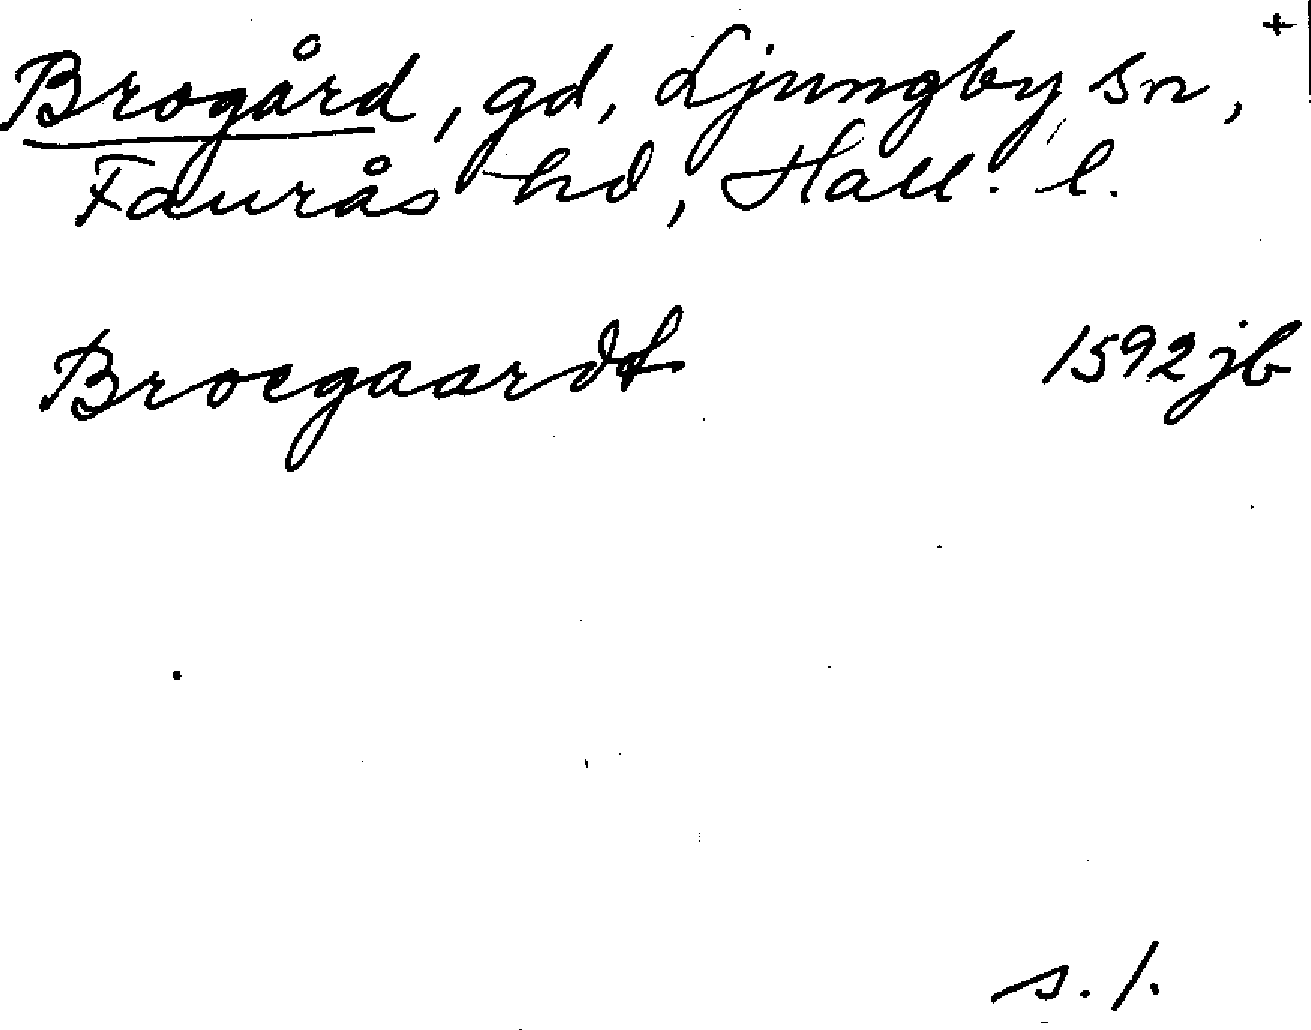 +
Brogård, gd, Ljungby sn,
Faurås hd, Hall. l.
Broegaardt 1592 jb
s. 1.